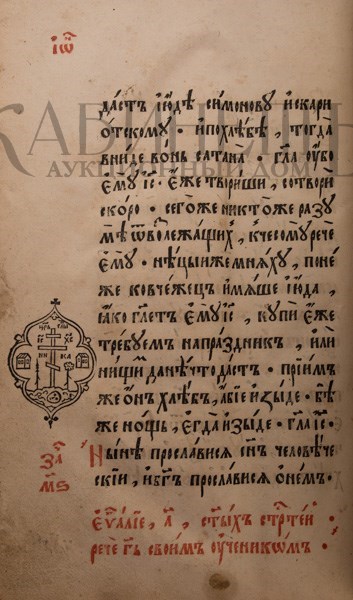 іѡ҃
дастъ ію́дѣ си́монову и҆скари
о́тскому · и҆похлѣ́бѣ, тогда̀
вни́де во́нь сатана̀ · гл҃а ᲂу҆бо
є҆му̀ і҆с҃ · є҆́же твори́ши, сотворѝ
ско́ро · сего́же никто́же разу
мѣ̀ ѿвозлежа́щихъ, кчесо́му речѐ
є҆мꙋ̀ · нѣ́цыи же мнѧ́хꙋ, поне́
же ковче́жецъ и҆мѧ́ше і҆ю́да,
ꙗ҆́ко гл҃етъ є҆мꙋ̀ і҆с҃, кꙋпѝ є҆́же
тре́бꙋемъ напра́здникъ, и҆лѝ
ни́щимъ да нѣ́что да́стъ · прїи́мъ
же ѻ҆́нъ хлѣ́бъ, а҆́бїе и҆зы́де · бѣ́
же но́щь, є҆гда̀ и҆зы́де · гл҃а і҆с҃ ·
Ны́нѣ просла́висѧ сн҃ъ человѣ́че
скїи, и҆ бг҃ъ просла́висѧ ѡ҆не́мъ ·
за҃
м҃ѕ
є҆ѵⷢ҇а́лїе, а҃, ст҃ы́хъ стрⷭ҇те́и ·
речѐ гд҇ь свои҆́мъ ᲂу҆ченикѡ́мъ ·
КАБИНЕТЪ
АУКЦИОННЫЙ ДОМ